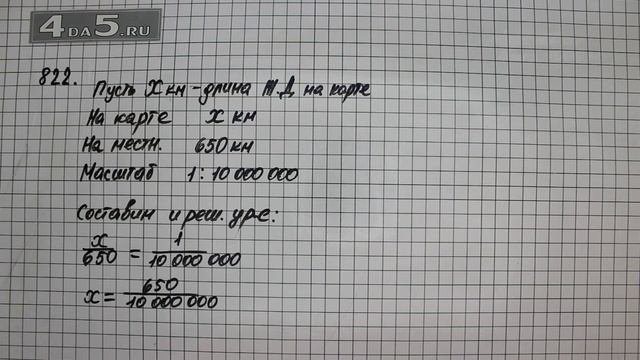 4DA5.RU
822.
Пусть X км - длина Ж.Д. на карте
На карте X км
На местн. 650 км
Масштаб 1 : 10 000 000
Составим и реш. ур-е:
x/650 = 1/10 000 000
x = 650/10 000 000